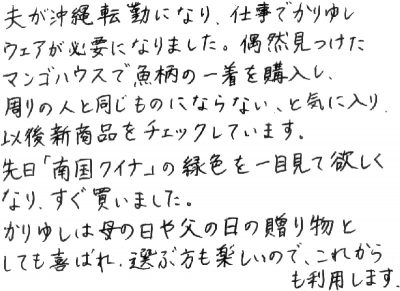 夫が沖縄転勤になり、仕事でかりゆし
ウェアが必要になりました。偶然見つけた
マンゴハウスで魚柄の一着を購入し、
周りの人と同じものにならない、と気に入り、
以後新商品をチェックしています。
先日「南国クイナ」の緑色を一目見て欲しく
なり、すぐ買いました。
かりゆしは母の日や父の日の贈り物と
しても喜ばれ、選ぶ方も楽しいので、これから
も利用します。